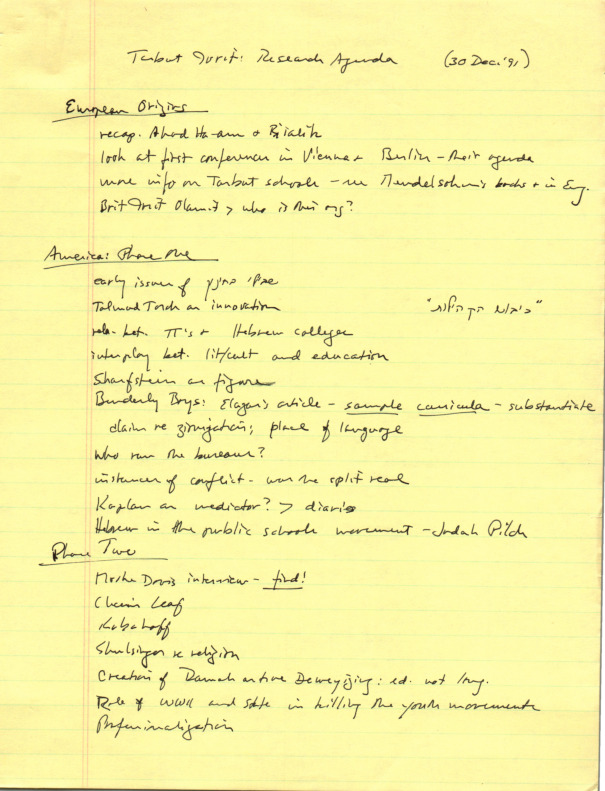 Tarbut Ivrit: Research Agenda (30 Dec. '91)
European Origins
recap. Ahad Ha-am + Bialik
look at first conferences in Vienna + Berlin – their agenda
more info on Tarbut schools – use Mendelsohn's books + in Eng.
Brit Ivrit Olamit > who is this org?
America: Phase One
early issues of שבילי החינוך
Talmud Torah as innovation
rela. bet. TT's + Hebrew colleges
interplay bet. lit/cult and education
Sharfstein as figure
Benderly Boys: Elazar's article – sample curricula – substantiate
claim re zionization; place of language
Who ran the bureaus?
instances of conflict – was the split real
Kaplan as mediator? > diaries
Hebrew in the public schools movement – Judah Pilch
Phase Two
Moshe Davis interview – find!
Chaim Leaf
Kabakoff
Shulsinger re religion
Creation of Ramah as true Deweyizing: ed. not lang.
Role of WWII and State in killing the youth movements
Professionalization